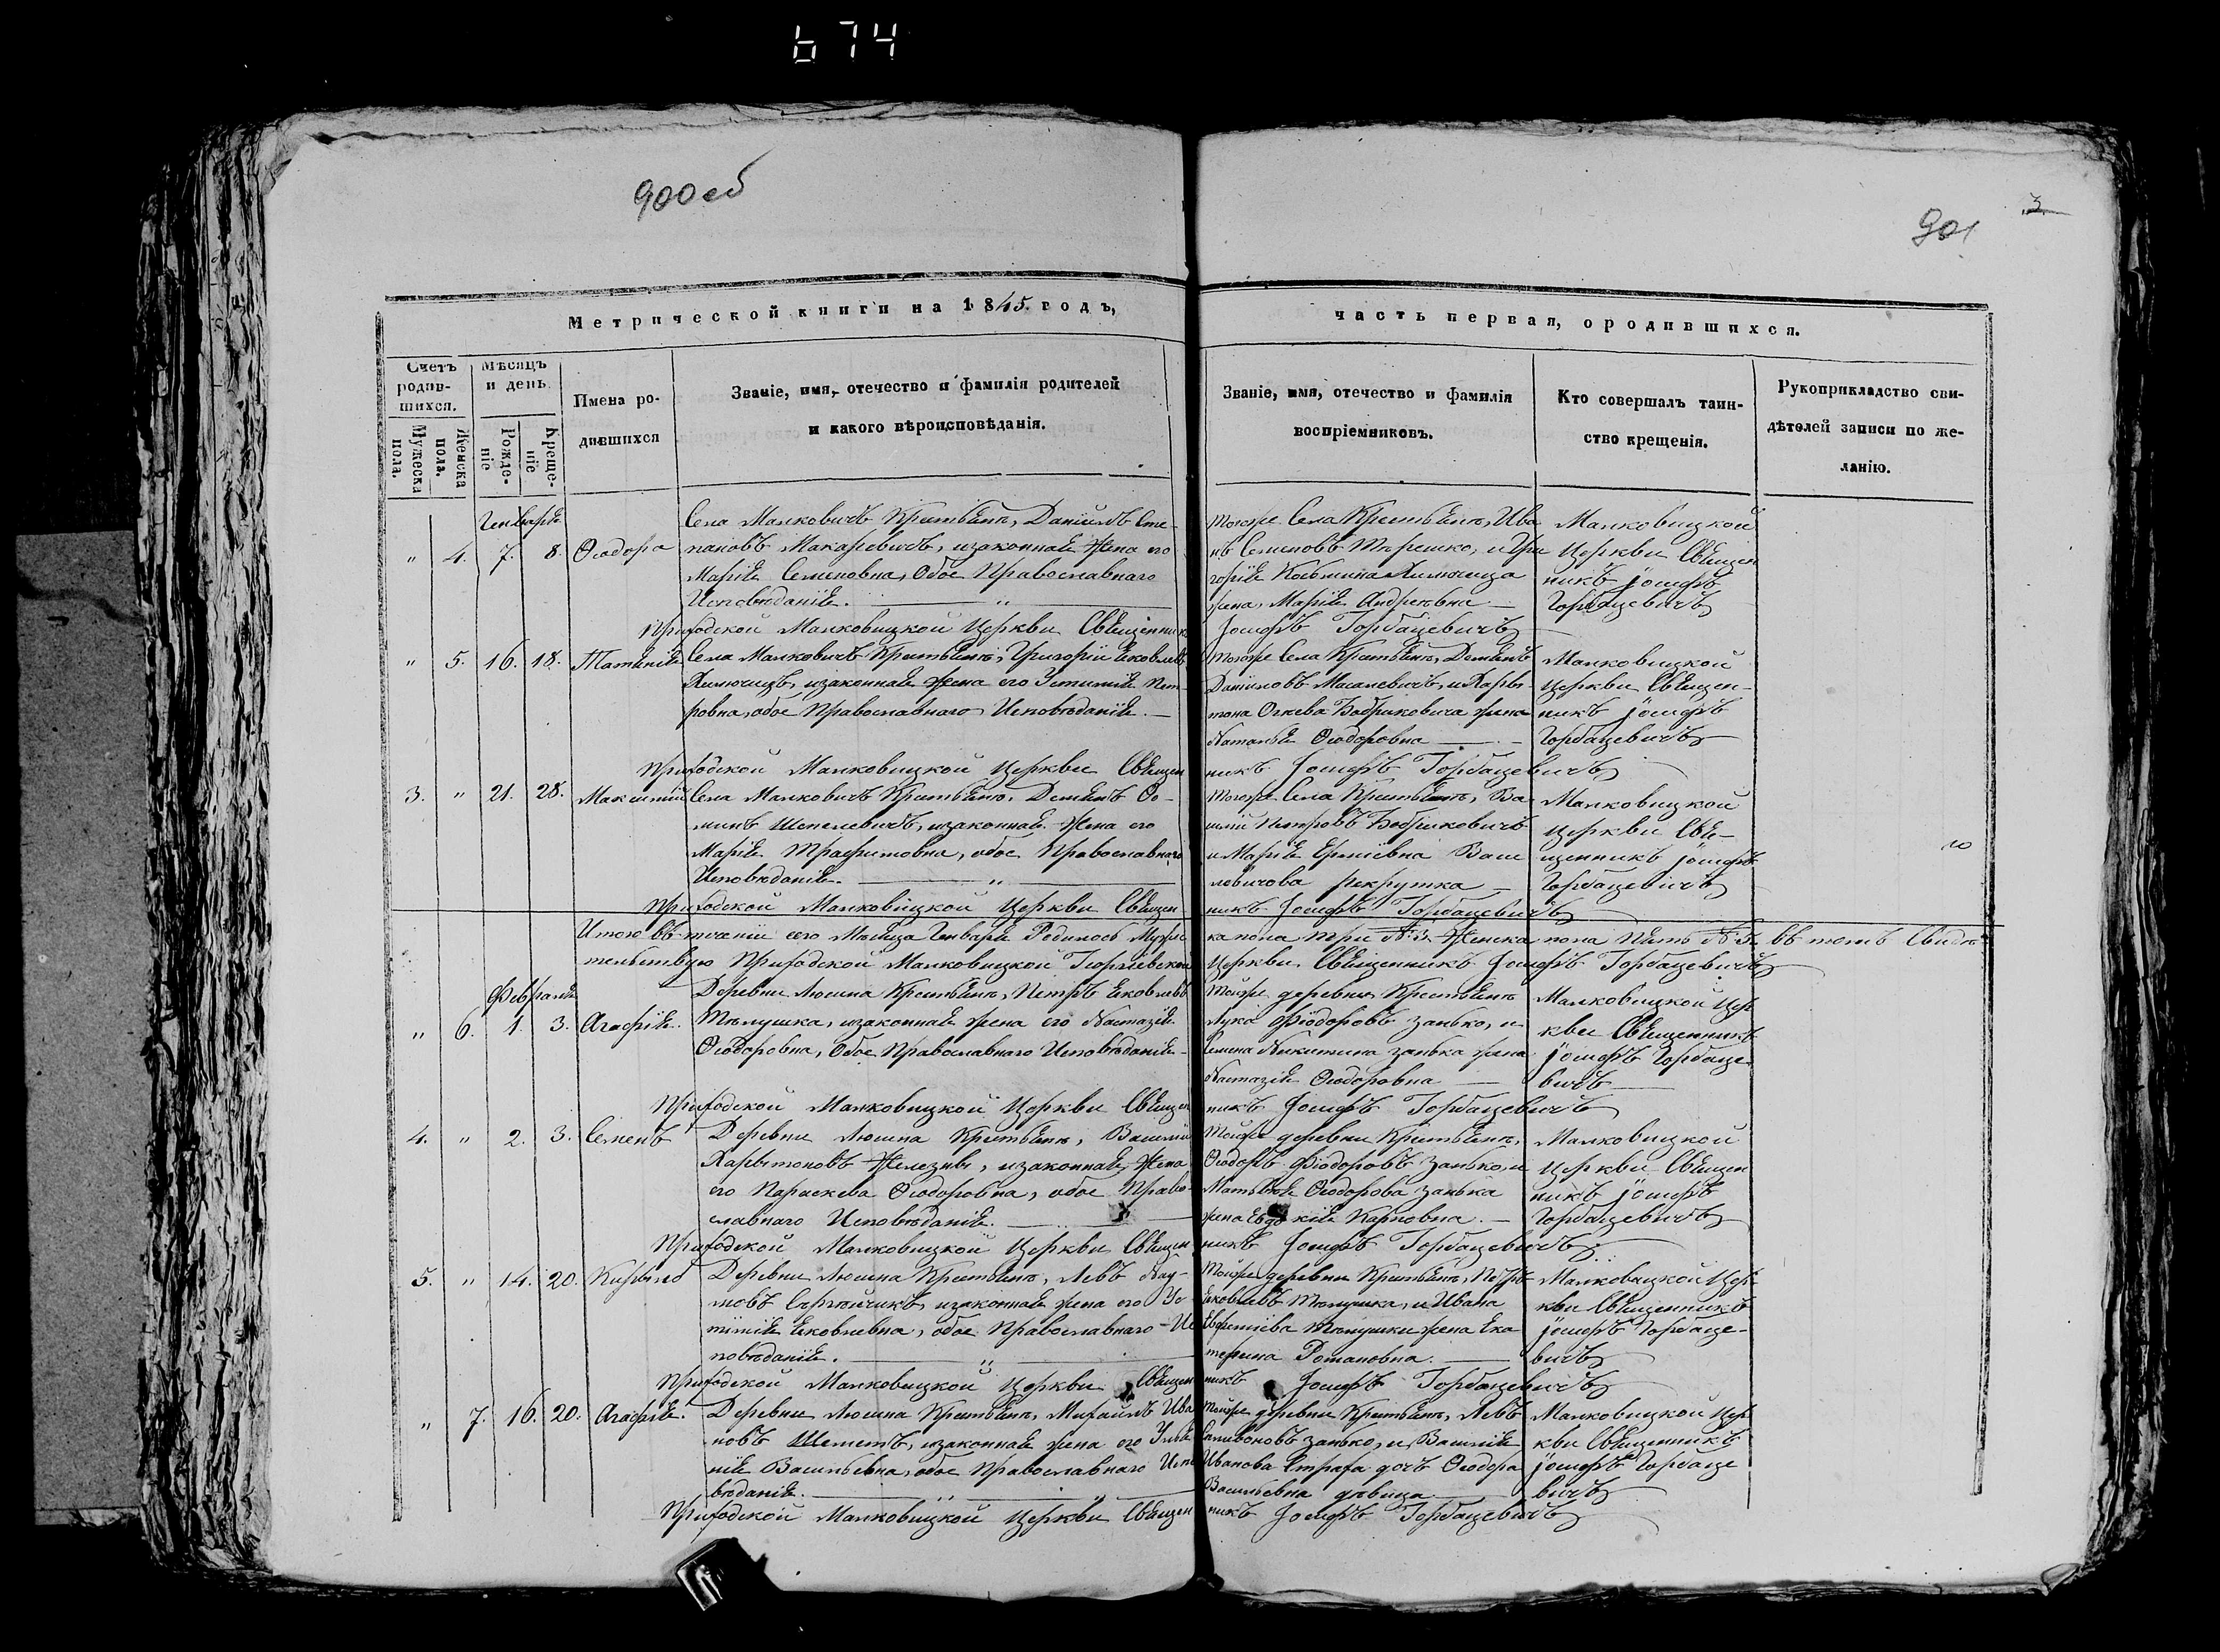 674
900об
901
3
Метрической книги на 1845. годъ,
часть первая, о родившихся.
Счетъ родив-шихся.
Мужеска пола.
Женска пола.
Мѣсяцъ и день
Рожде-ніе
Креще-ніе
Имена ро-
дившихся
Званіе, имя, отечество и фамилія родителей
и какого вѣроисповѣданія.
Званіе, имя, отечество и фамилія
воспріемниковъ.
Кто совершалъ таин-
ство крещенія.
Рукоприкладство сви-
дѣтелей записи по же-
ланію.
Генваря
" 4. 7. 8. Ѳеодора
Села Малковичъ Крестьянъ, Даніилъ Сте-
пановъ Макаревичъ, и законная жена его
Марія Семеновна, Обое Православнаго
Исповѣданія. "
тогоже Села Крестьянъ, Ива
нъ Семеновъ Терешко, и Гри
горія Косьмина Хилючица
жена, Марія Андреевна
Малковицкой
Церкви Священ
никъ Іосифъ
Горбацевичъ
Приходской Малковицкой Церкви Священник Іосифъ Горбацевичъ
" 5. 16. 18. Татьянія
Села Малковичъ Крестьянъ, Григорій Яковлевъ
Хилючицъ, и законная жена его Устинія Пет-
ровна, обое Православнаго Исповѣданія.
тогоже Села Крестьянъ, Демьянъ
Даніиловъ Масалевичъ, и Хары-
тона Бобриковича жена
Наталья Ѳеодоровна
Малковицкой
Церкви Священ-
никъ Іосифъ
Горбацевичъ
Приходской Малковицкой Церкви Священ никъ Іосифъ Горбацевичъ
3. " 21. 28.
Села Малковичъ Крестьянъ, Демьянъ Ѳо-
минъ Шепелевичъ, и законная жена его
Марія Трафимовна, обое Православнаго
Исповѣданія. "
тогоже Села Крестьянъ, Ва
силій Петровъ Бобриковичъ
и Марія Ермієвна Васи
левичова рекрутка
Малковицкой
Церкви Свя-
щенникъ Іосифъ
Горбацевичъ
Приходской Малковицкой Церкви Священ никъ Іосифъ Горбацевичъ
Итого въ теченіи сего Мѣсяца Генваря Родилось Мужес ка пола три №3. Женска пола пять №5. въ томъ Свидѣ-
тельствую Приходской Малковицкой Георгіевской Церкви Священникъ Іосифъ Горбацевичъ
Февраля
" 6. 1. 3. Агафія.
Деревни Люсина Крестьянъ, Петръ Яковлевъ
Телушка, и законная жена его Настазія
Ѳеодоровна, Обое Православнаго Исповѣданія
Тойже деревни Крестьянъ
Лука Фіодоровъ Занько, и
Семена Никитина Занька жена
Настазія Ѳеодоровна
Малковицкой Цер
кви Священникъ
Іосифъ Горбаце
вичъ
Приходской Малковицкой Церкви Священ никъ Іосифъ Горбацевичъ
4. " 2. 3. Семенъ
Деревни Люсина Крестьянъ, Василій
Харытоновъ Железны, и законная жена
его Параскева Ѳеодоровна, обое Право-
славнаго Исповѣданія.
Тойже деревни Крестьянъ,
Ѳеодоръ Фіодоровъ Занько, и
Матвѣя Ѳеодорова Занька
жена Евдокія Карповна.
Малковицкой
Церкви Священ
никъ Іосифъ
Горбацевичъ
Приходской Малковицкой Церкви Священ никъ Іосифъ Горбацевичъ
5. " 14. 20.
Деревни Люсина Крестьянъ, Левъ Нау-
мовъ и законная жена его Ус
тинія Яковлевна, обое Православнаго Ис
повѣданія. "
Тойже деревни Крестьянъ, Петръ
Яковлевъ Телушка, и Ивана
Телушки жена Ека
терина Романовна.
Малковицкой Цер
кви Священникъ
Іосифъ Горбаце-
вичъ
Приходской Малковицкой Церкви Священ никъ Іосифъ Горбацевичъ
" 7. 16. 20. Агафія.
Деревни Люсина Крестьянъ, Михаилъ Ива
новъ Шеметъ, и законная жена его Улья
нія Васильевна, обое Православнаго Испо
вѣданія. " "
Тойже деревни Крестьянъ, Левъ
Селивоновъ Занько, и Василія
Иванова Страха дочь Ѳеодора
Васильевна дѣвица
Малковицкой Цер
кви Священникъ
Іосифъ Горбаце
вичъ
Приходской Малковицкой Церкви Священ никъ Іосифъ Горбацевичъ